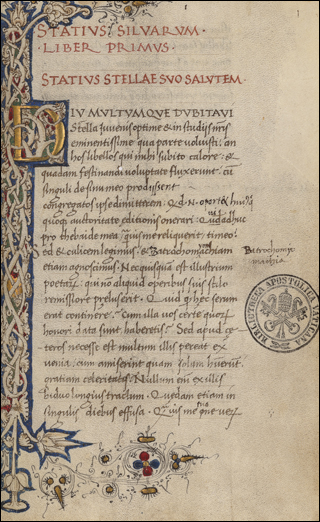 STATIVS SILVARVM·
·LIBER PRIMVS·
STATIVS STELLAE SVO SALVTEM·
DIV MVLTVMQVE DVBITAVI
Stella Iuvenis optime & in studijs nris
eminentissime qua parte voluisti: an
hos libellos qui mihi subito calore: &
quadam festinandi voluptate fluxerunt: cũ
singuli de sinu meo prodissent
congregatos ipse dimitterem: Quid. N. oportet
quoq; auctoritate editionis onerari: Quid adhuc
pro thebaide mea quis me reliquerit: timeo:
sed & culicem legimus: & Batrochomachiam
etiam agnoscimus: Nec quisquã est illustrium
poetarũ qui nõ aliquid operibus suis stilo
remissiore preluserit: Quid q; hec serum
erat continere: cum illa vos certe quorũ
honori data sunt haberetis: Sed apud ce-
teros necesse est multum illis pereat ex
venia: cum amiserint quam solam habuerũt
gratiam celeritatis: Nullum eni ex illis
biduo longius tractum: Quedam etiam in
singulis diebus effusa: Quis me
Batrochomyo
machia.
BIBLIOTHECA APOSTOLICA VATICANA